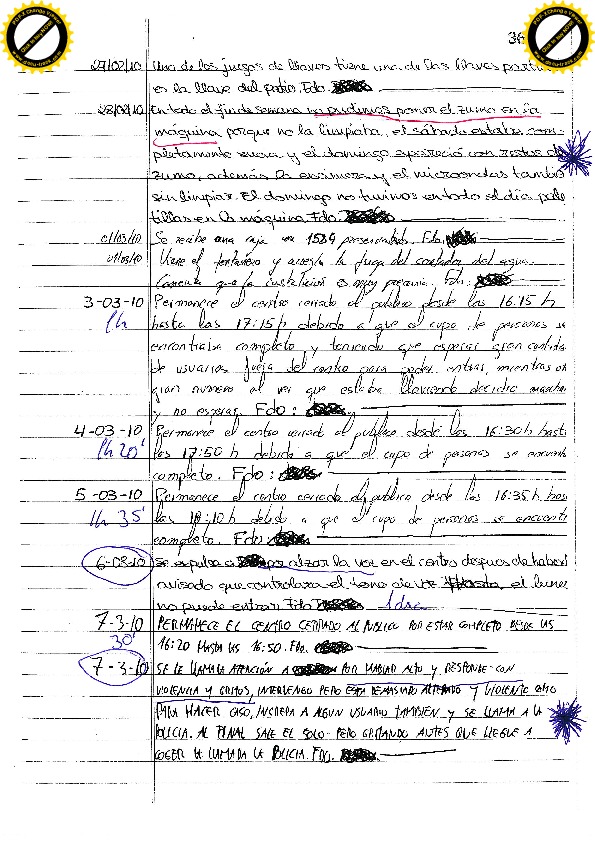 36
27/02/10 Uno de los juegos de llaves tiene una de las llaves partida
es la llave del patio. Fdo.
28/02/10 En todo el fin de semana no pudimos poner el zumo en la
máquina porque no la limpiaba, el sábado estaba com-
pletamente sucia y el domingo apareció con restos de
zumo, además la encimera y el microondas también
sin limpiar. El domingo no tuvimos en todo el día pale-
tillas en la máquina. Fdo.
01/03/10 Se recibe una caja con 1584 preservativos. Fdo.
01/03/10 Viene el fontanero y arregla la fuga del contador del agua.
Comenta que la instalación es muy precaria. Fdo.
3-03-10 Permanece el centro cerrado al publico desde las 16:15 h
1h hasta las 17:15 h debido a que el cupo de personas se
encontraba completo y teniendo que esperar gran cantidad
de usuarios fuera del centro para poder entrar, mientras un
gran numero al ver que estaba lloviendo decidio marchar
y no esperar. Fdo:
4-03-10 Permanece el centro cerrado al publico desde las 16:30 h hasta
1h 20' las 17:50 h debido a que el cupo de personas se encuentra
completo. Fdo:
5-03-10 Permanece el centro cerrado al publico desde las 16:35 h hasta
1h 35' las 18:10 h debido a que el cupo de personas se encuentra
completo. Fdo:
6-03-10 Se expulsa a por alzar la voz en el centro despues de haberle
avisado que controlara el tono de voz el lunes
no puede entrar. Fdo. 1 día
7-3-10 PERMANECE EL CENTRO CERRADO AL PUBLICO POR ESTAR COMPLETO DESDE LAS
30' 16:20 HASTA LAS 16:50. FDO.
7-3-10 SE LE LLAMA LA ATENCIÓN A POR HABLAR ALTO Y RESPONDE CON
VIOLENCIA Y GRITOS, INTERVENGO PERO ESTA DEMASIADO ALTERADO Y VIOLENTO COMO
PARA HACER CASO, INCREPA A ALGUN USUARIO TAMBIEN Y SE LLAMA A LA
POLICIA. AL FINAL SALE EL SOLO PERO GRITANDO ANTES QUE LLEGUE A
COGER LA LLAMADA LA POLICIA. FDO.